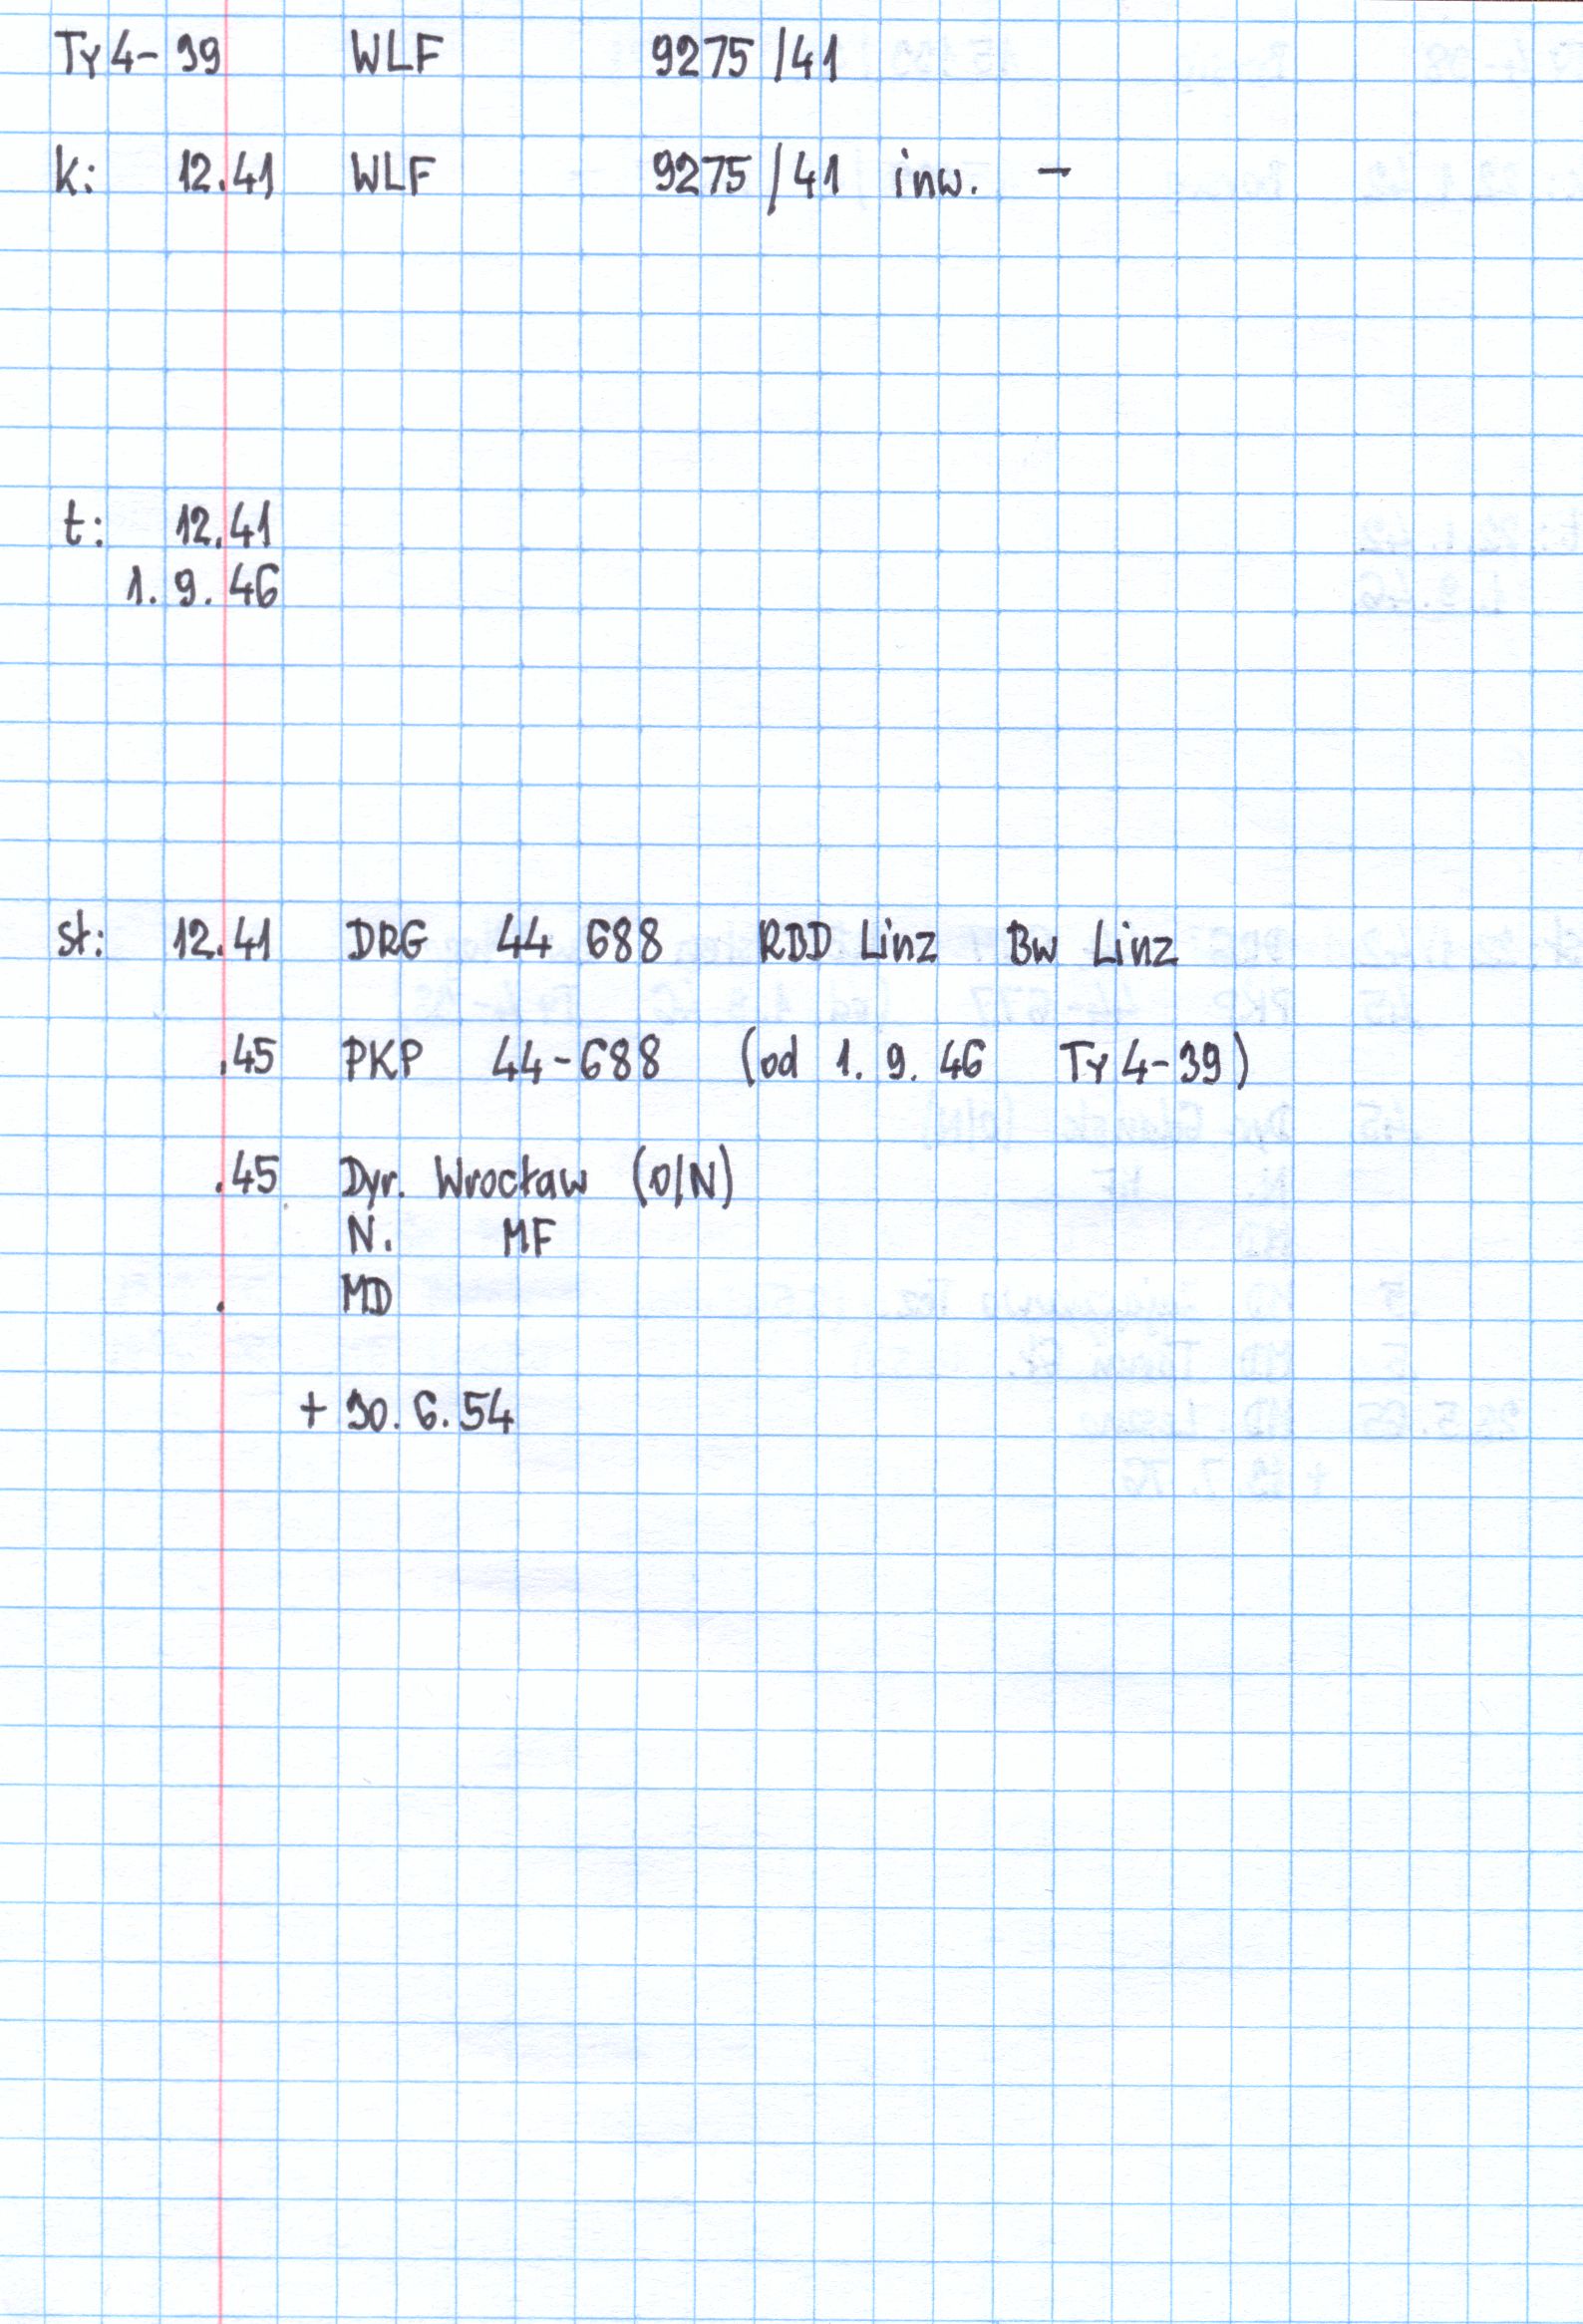 Ty4-39 WLF 9275/41
k: 12.41 WLF 9275/41 inw. -
t: 12.41
1. 9. 46
st: 12.41 DRG 44 688 RBD Linz Bw Linz
.45 PKP 44-688 (od 1. 9. 46 Ty4-39)
.45 Dyr. Wrocław (O/N)
N. MF
. MD
+ 30. 6. 54